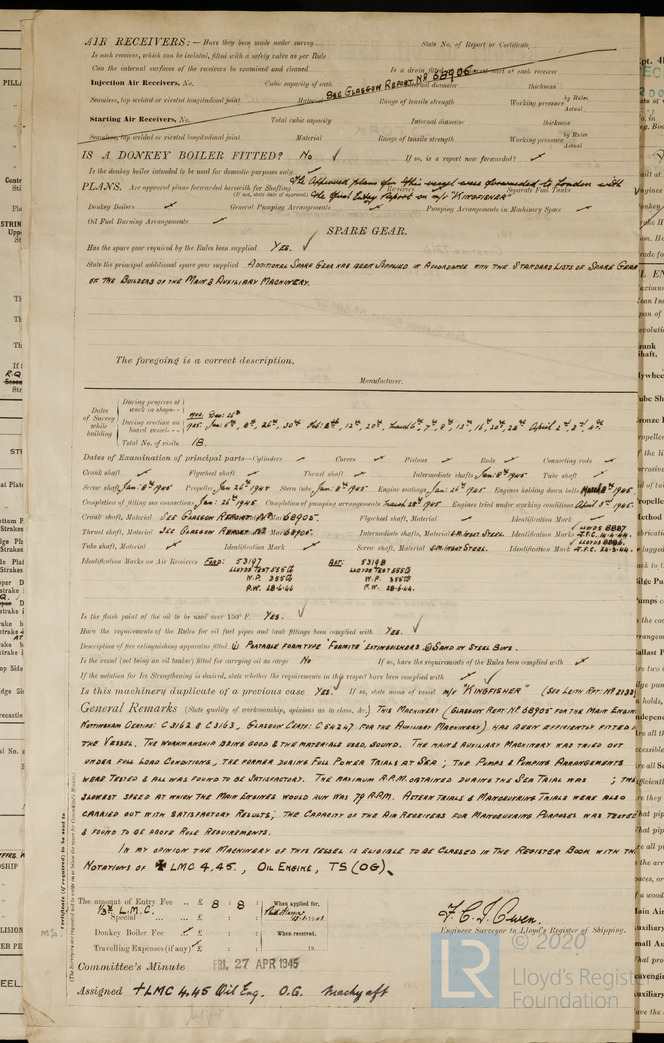 AIR RECEIVERS:— Have they been made under survey State No. of Report or Certificate
Is each receiver, which can be isolated, fitted with a safety valve as per Rule
Can the internal surfaces of the receivers be examined and cleaned Is a drain fitted part of each receiver
SEE GLASGOW REPORT, No 68905
Injection Air Receivers, No. Cubic capacity of each Internal diameter thickness
Seamless, lap welded or riveted longitudinal joint Material Range of tensile strength Working pressure by Rules Actual
Starting Air Receivers, No. Total cubic capacity Internal diameter thickness
Seamless, lap welded or riveted longitudinal joint Material Range of tensile strength Working pressure by Rules Actual
IS A DONKEY BOILER FITTED? No ✓ If so, is a report now forwarded? ✓
Is the donkey boiler intended to be used for domestic purposes only
The Approved plans for this vessel were forwarded to London with
PLANS. Are approved plans forwarded herewith for Shafting Receivers Separate Fuel Tanks
the first Entry Report on m/v "KINGFISHER"
Donkey Boilers ✓ General Pumping Arrangements ✓ Pumping Arrangements in Machinery Space ✓
Oil Fuel Burning Arrangements ✓
SPARE GEAR.
Has the spare gear required by the Rules been supplied YES. ✓
State the principal additional spare gear supplied ADDITIONAL SPARE GEAR HAS BEEN SUPPLIED IN ACCORDANCE WITH THE STANDARD LISTS OF SPARE GEAR
OF THE BUILDERS OF THE MAIN & AUXILIARY MACHINERY.
The foregoing is a correct description,
Manufacturer.
Dates of Survey while building
During progress of work in shops - - 1944. Dec: 26th
During erection on board vessel - - - 1945. Jan: 5th, 8th, 26th, 30th Feb: 8th, 12th, 20th, March 6th, 7th, 8th, 12th, 16th, 20th, 28th April 2nd, 3rd, 4th.
Total No. of visits 18.
Dates of Examination of principal parts—Cylinders ✓ Covers ✓ Pistons ✓ Rods ✓ Connecting rods ✓
Crank shaft ✓ Flywheel shaft ✓ Thrust shaft ✓ Intermediate shafts Jan: 8th 1945 Tube shaft ✓
Screw shaft Jan: 8th 1945 Propeller Jan 26th 1945 Stern tube Jan: 8th 1945 Engine seatings Jan: 26th 1945 Engines holding down bolts March 8th 1945.
Completion of fitting sea connections Jan: 26th 1945 Completion of pumping arrangements March 28th 1945 Engines tried under working conditions April 3rd 1945.
Crank shaft, Material SEE GLASGOW REPORT No 68905. Flywheel shaft, Material ✓ Identification Mark ✓
Thrust shaft, Material SEE GLASGOW REPORT No 68905. Intermediate shafts, Material S.M. INGOT STEEL. Identification Marks LLOYDS 8887 T.F.C. 14.4.44.
Tube shaft, Material ✓ Identification Mark ✓ Screw shaft, Material S.M. INGOT STEEL. Identification Mark LLOYDS 8886. T.F.C. 24.3.44.
Identification Marks on Air Receivers FORD: 53197 AFT: 53198
LLOYDS TEST 555lb LLOYDS TEST 555lb
W.P. 355lb W.P. 355lb
P.W. 28.6.44 P.W. 28.6.44.
Is the flash point of the oil to be used over 150° F. YES. ✓
Have the requirements of the Rules for oil fuel pipes and tank fittings been complied with YES. ✓
Description of fire extinguishing apparatus fitted (1) PORTABLE FOAM TYPE "FOAMITE" EXTINGUISHERS (2) SAND IN STEEL BINS.
Is the vessel (not being an oil tanker) fitted for carrying oil as cargo No If so, have the requirements of the Rules been complied with ✓
If the notation for Ice Strengthening is desired, state whether the requirements in this respect have been complied with ✓
Is this machinery duplicate of a previous case YES. ✓ If so, state name of vessel m/v "KINGFISHER" (SEE LEITH RPT: No 2133
General Remarks (State quality of workmanship, opinions as to class, &c.) THIS MACHINERY (GLASGOW REPT: No 68905 FOR THE MAIN ENGINE
NOTTINGHAM CERTIFS: C3162 & C3163, GLASGOW CERTF: C54247 FOR THE AUXILIARY MACHINERY) HAS BEEN EFFICIENTLY FITTED
THE VESSEL. THE WORKMANSHIP BEING GOOD & THE MATERIALS USED, SOUND. THE MAIN & AUXILIARY MACHINERY WAS TRIED OUT
UNDER FULL LOAD CONDITIONS, THE FORMER DURING FULL POWER TRIALS AT SEA; THE PUMPS & PUMPING ARRANGEMENTS
WERE TESTED & ALL WAS FOUND TO BE SATISFACTORY. THE MAXIMUM R.P.M. OBTAINED DURING THE SEA TRIAL WAS ; THE
SLOWEST SPEED AT WHICH THE MAIN ENGINES WOULD RUN WAS 79 R.P.M. ASTERN TRIALS & MANOEUVRING TRIALS WERE ALSO
CARRIED OUT WITH SATISFACTORY RESULTS; THE CAPACITY OF THE AIR RECEIVERS FOR MANOEUVRING PURPOSES WAS TESTED
& FOUND TO BE ABOVE RULE REQUIREMENTS.
IN MY OPINION THE MACHINERY OF THIS VESSEL IS ELIGIBLE TO BE CLASSED IN THE REGISTER BOOK WITH THE
NOTATIONS OF ✠ LMC 4.45., OIL ENGINE, TS (OG).
The amount of Entry Fee .. £ 8 : 8 : When applied for,
1/3rd L.M.C.
Special .. £ : :
Donkey Boiler Fee £ : : When received,
Travelling Expenses (if any) £ : : 19
F. C. J. Owen.
Engineer Surveyor to Lloyd's Register of Shipping.
Committee's Minute FRI. 27 APR 1945
Assigned +LMC 4.45 Oil Eng. O.G. Machy aft
LR © 2020
Lloyd's Register
Foundation